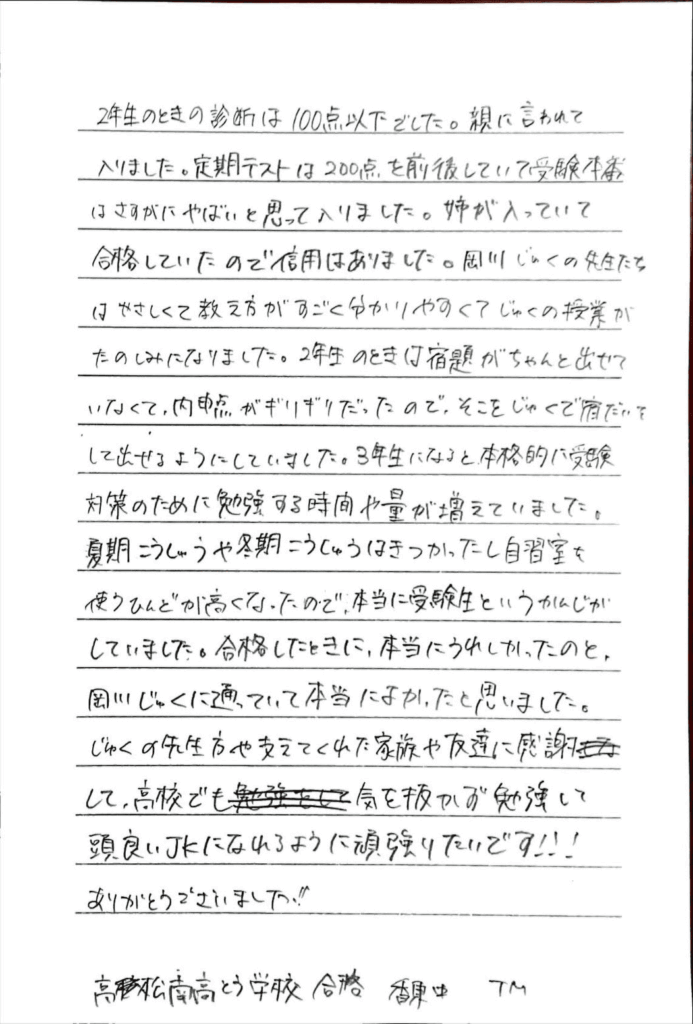 2年生のときの診断は100点以下でした。親に言われて
入りました。定期テストは200点を前後していて受験本番
はさすがにやばいと思って入りました。姉が入っていて
合格していたので信用はありました。岡川じゅくの先生たち
はやさしくて教え方がすごく分かりやすくてじゅくの授業が
たのしみになりました。2年生のときは宿題がちゃんと出せて
いなくて、内申点がギリギリだったので、そこをじゅくで宿だいを
して出せるようにしていました。3年生になると本格的に受験
対策のために勉強する時間や量が増えていました。
夏期こうしゅうや冬期こうしゅうはきつかったし自習室を
使うひんどが高くなったので、本当に受験生というかんじが
していました。合格したときに、本当にうれしかったのと、
岡川じゅくに通っていて本当によかったと思いました。
じゅくの先生方や支えてくれた家族や友達に感謝
して、高校でも気を抜かず勉強して
頭良いJKになれるように頑強りたいです!!!
ありがとうございました!!
高松南高とう学校 合格 香東中 TM